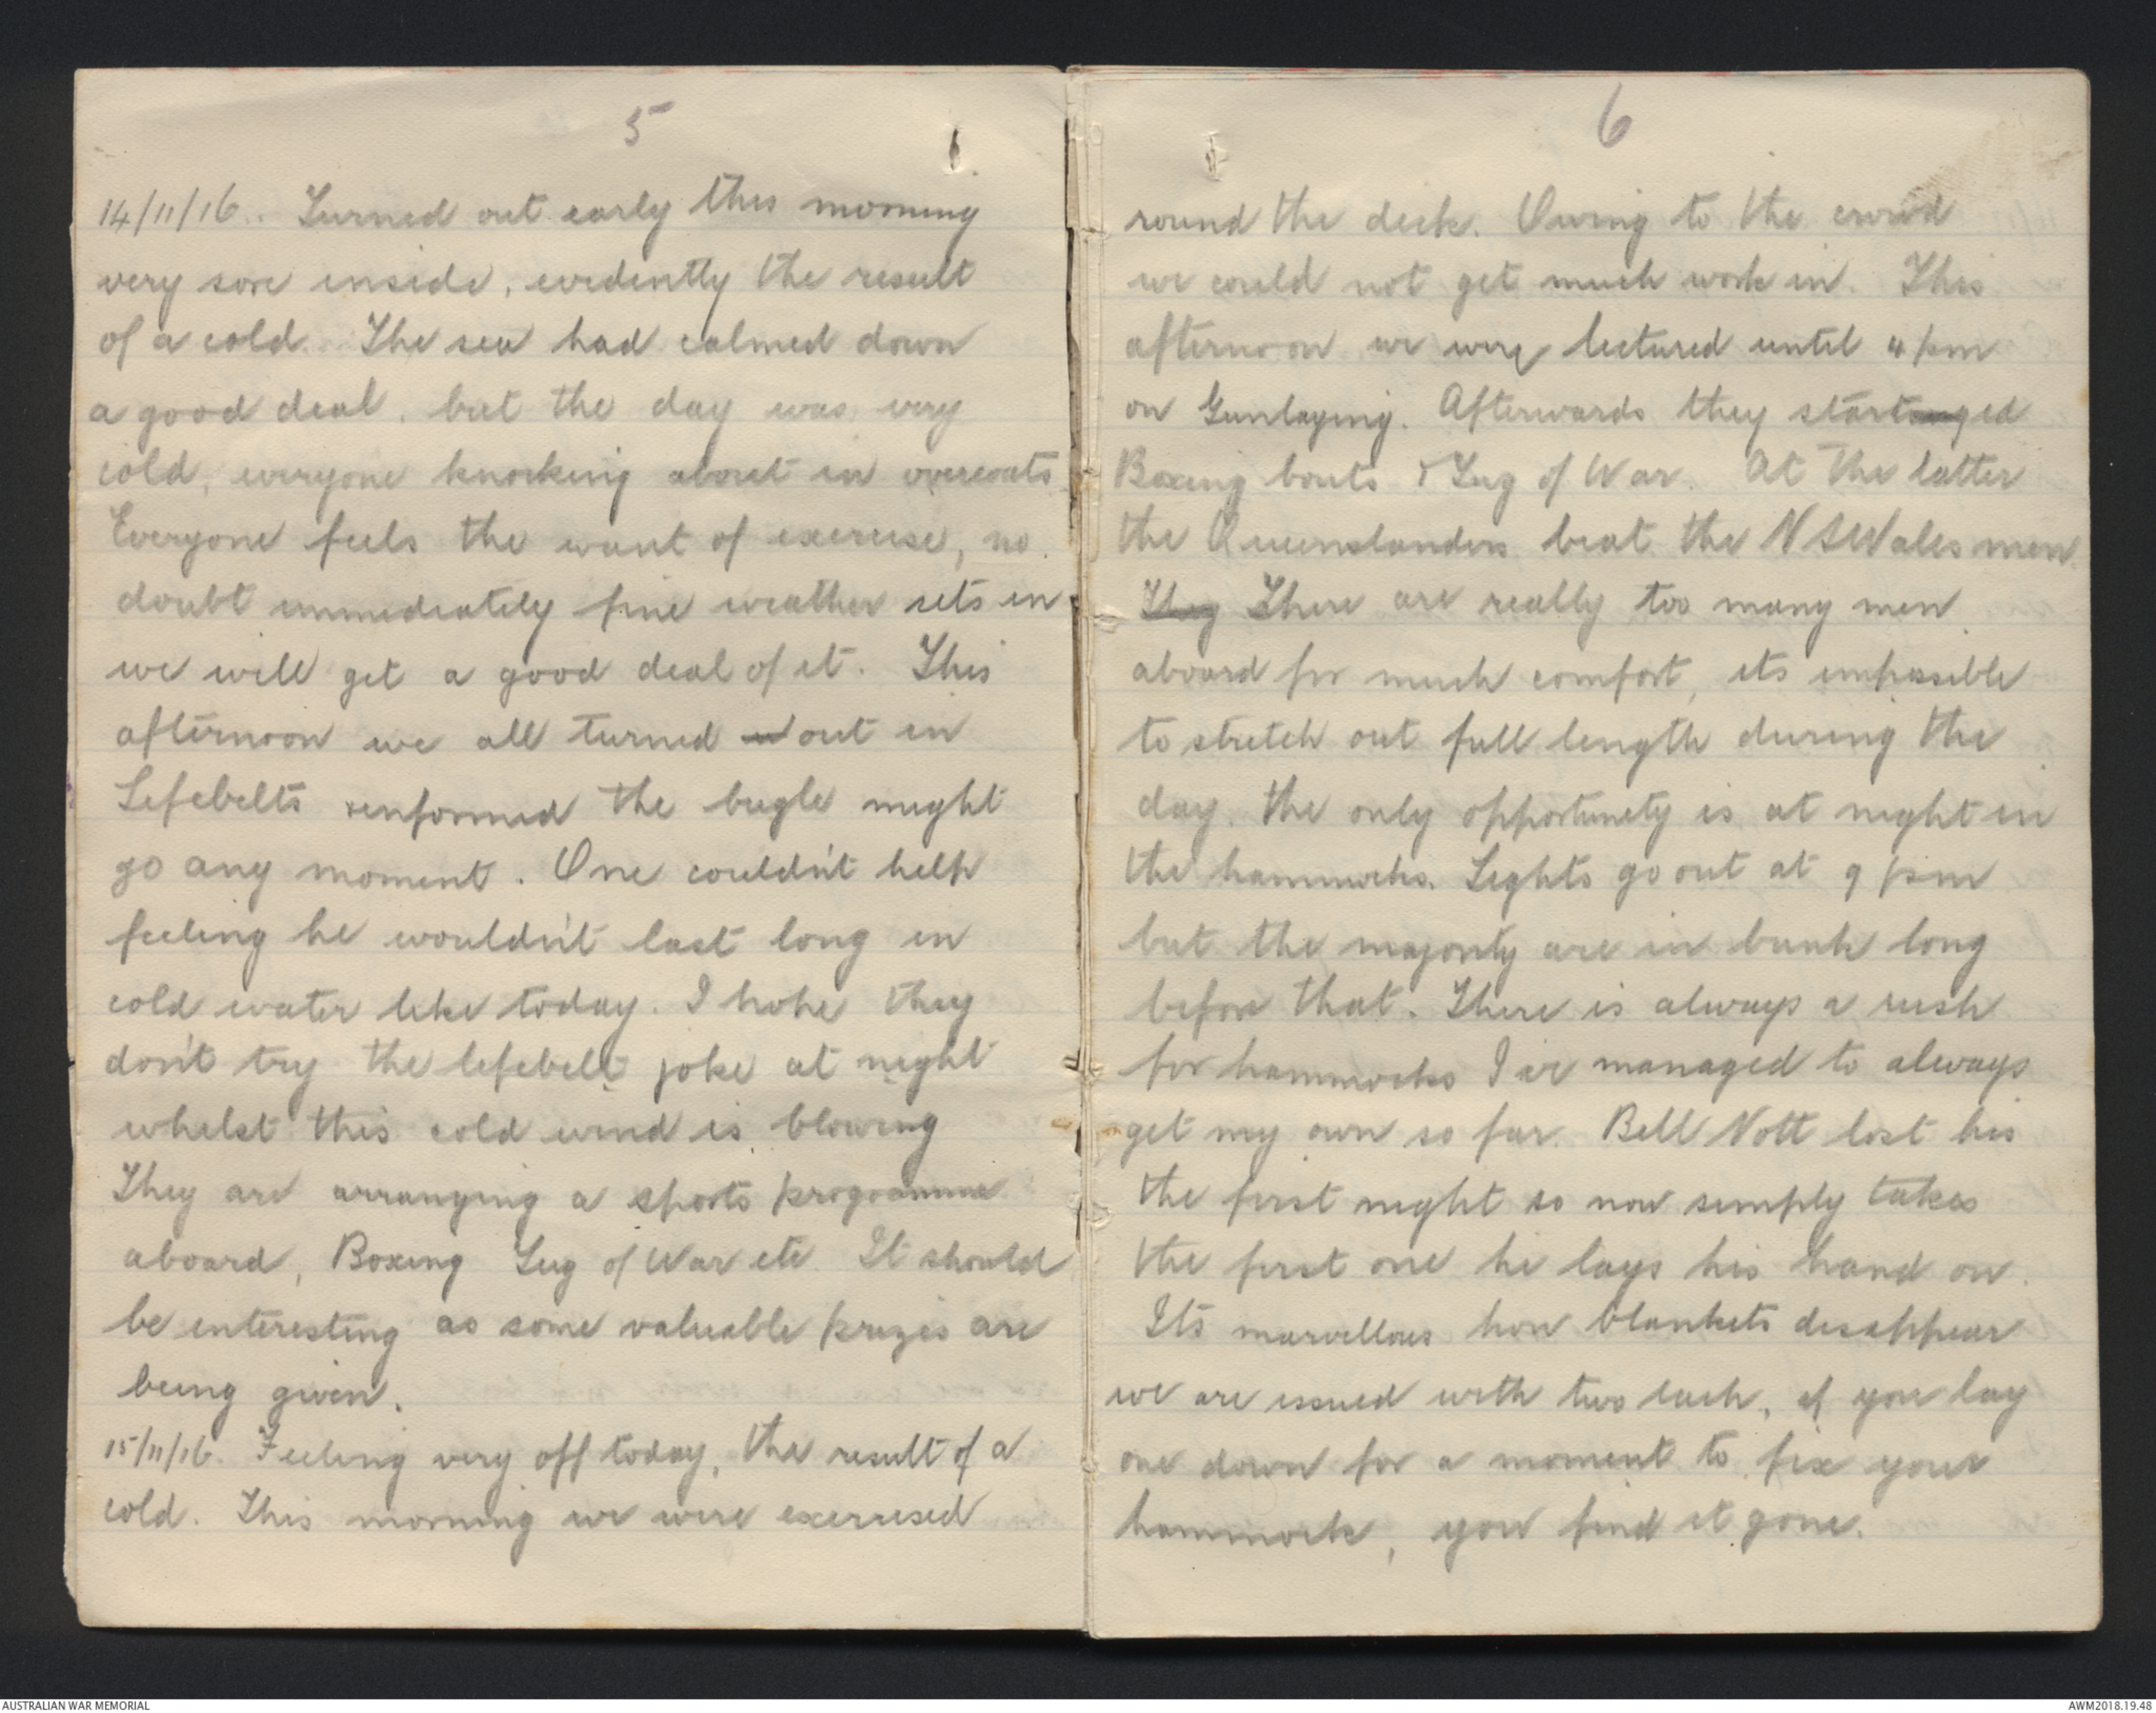 5
14/11/16. Turned out early this morning
very sore inside, evidently the result
of a cold. The sea had calmed down
a good deal. but the day was very
cold, everyone knocking about in overcoats
Everyone feels the want of exercise, no
doubt immediately fine weather sets in
we will get a good deal of it. This
afternoon we all turned out in
Lifebelts & informed the bugle might
go any moment. One couldn't help
feeling he wouldn't last long in
cold water like today. I hope they
don't try the lifebelt joke at night
whilst this cold wind is blowing
They are arranging a sports programme
aboard, Boxing Tug of War etc. It should
be interesting as some valuable prizes are
being given.
15/11/16. Feeling very off today, the result of a
cold. This morning we were exercised
6
round the deck. Owing to the crowd
we could not get much work in. This
afternoon we were lectured until 4 pm
on Gunlaying. Afterwards they started
Boxing bouts & Tug of War. At the latter
the Queenslanders beat the NSWales men.
They There are really too many men
aboard for much comfort, its impossible
to stretch out full length during the
day. the only opportunity is at night in
the hammocks. Lights go out at 9 pm
but the majority are in bunk long
before that. There is always a rush
for hammocks I've managed to always
get my own so far. Bill Nott lost his
the first night so now simply takes
the first one he lays his hand on.
Its marvellous how blankets disappear
we are issued with two each, if you lay
one down for a moment to fix your
hammock, you find it gone.
AUSTRALIAN WAR MEMORIAL
AWM2018.19.48